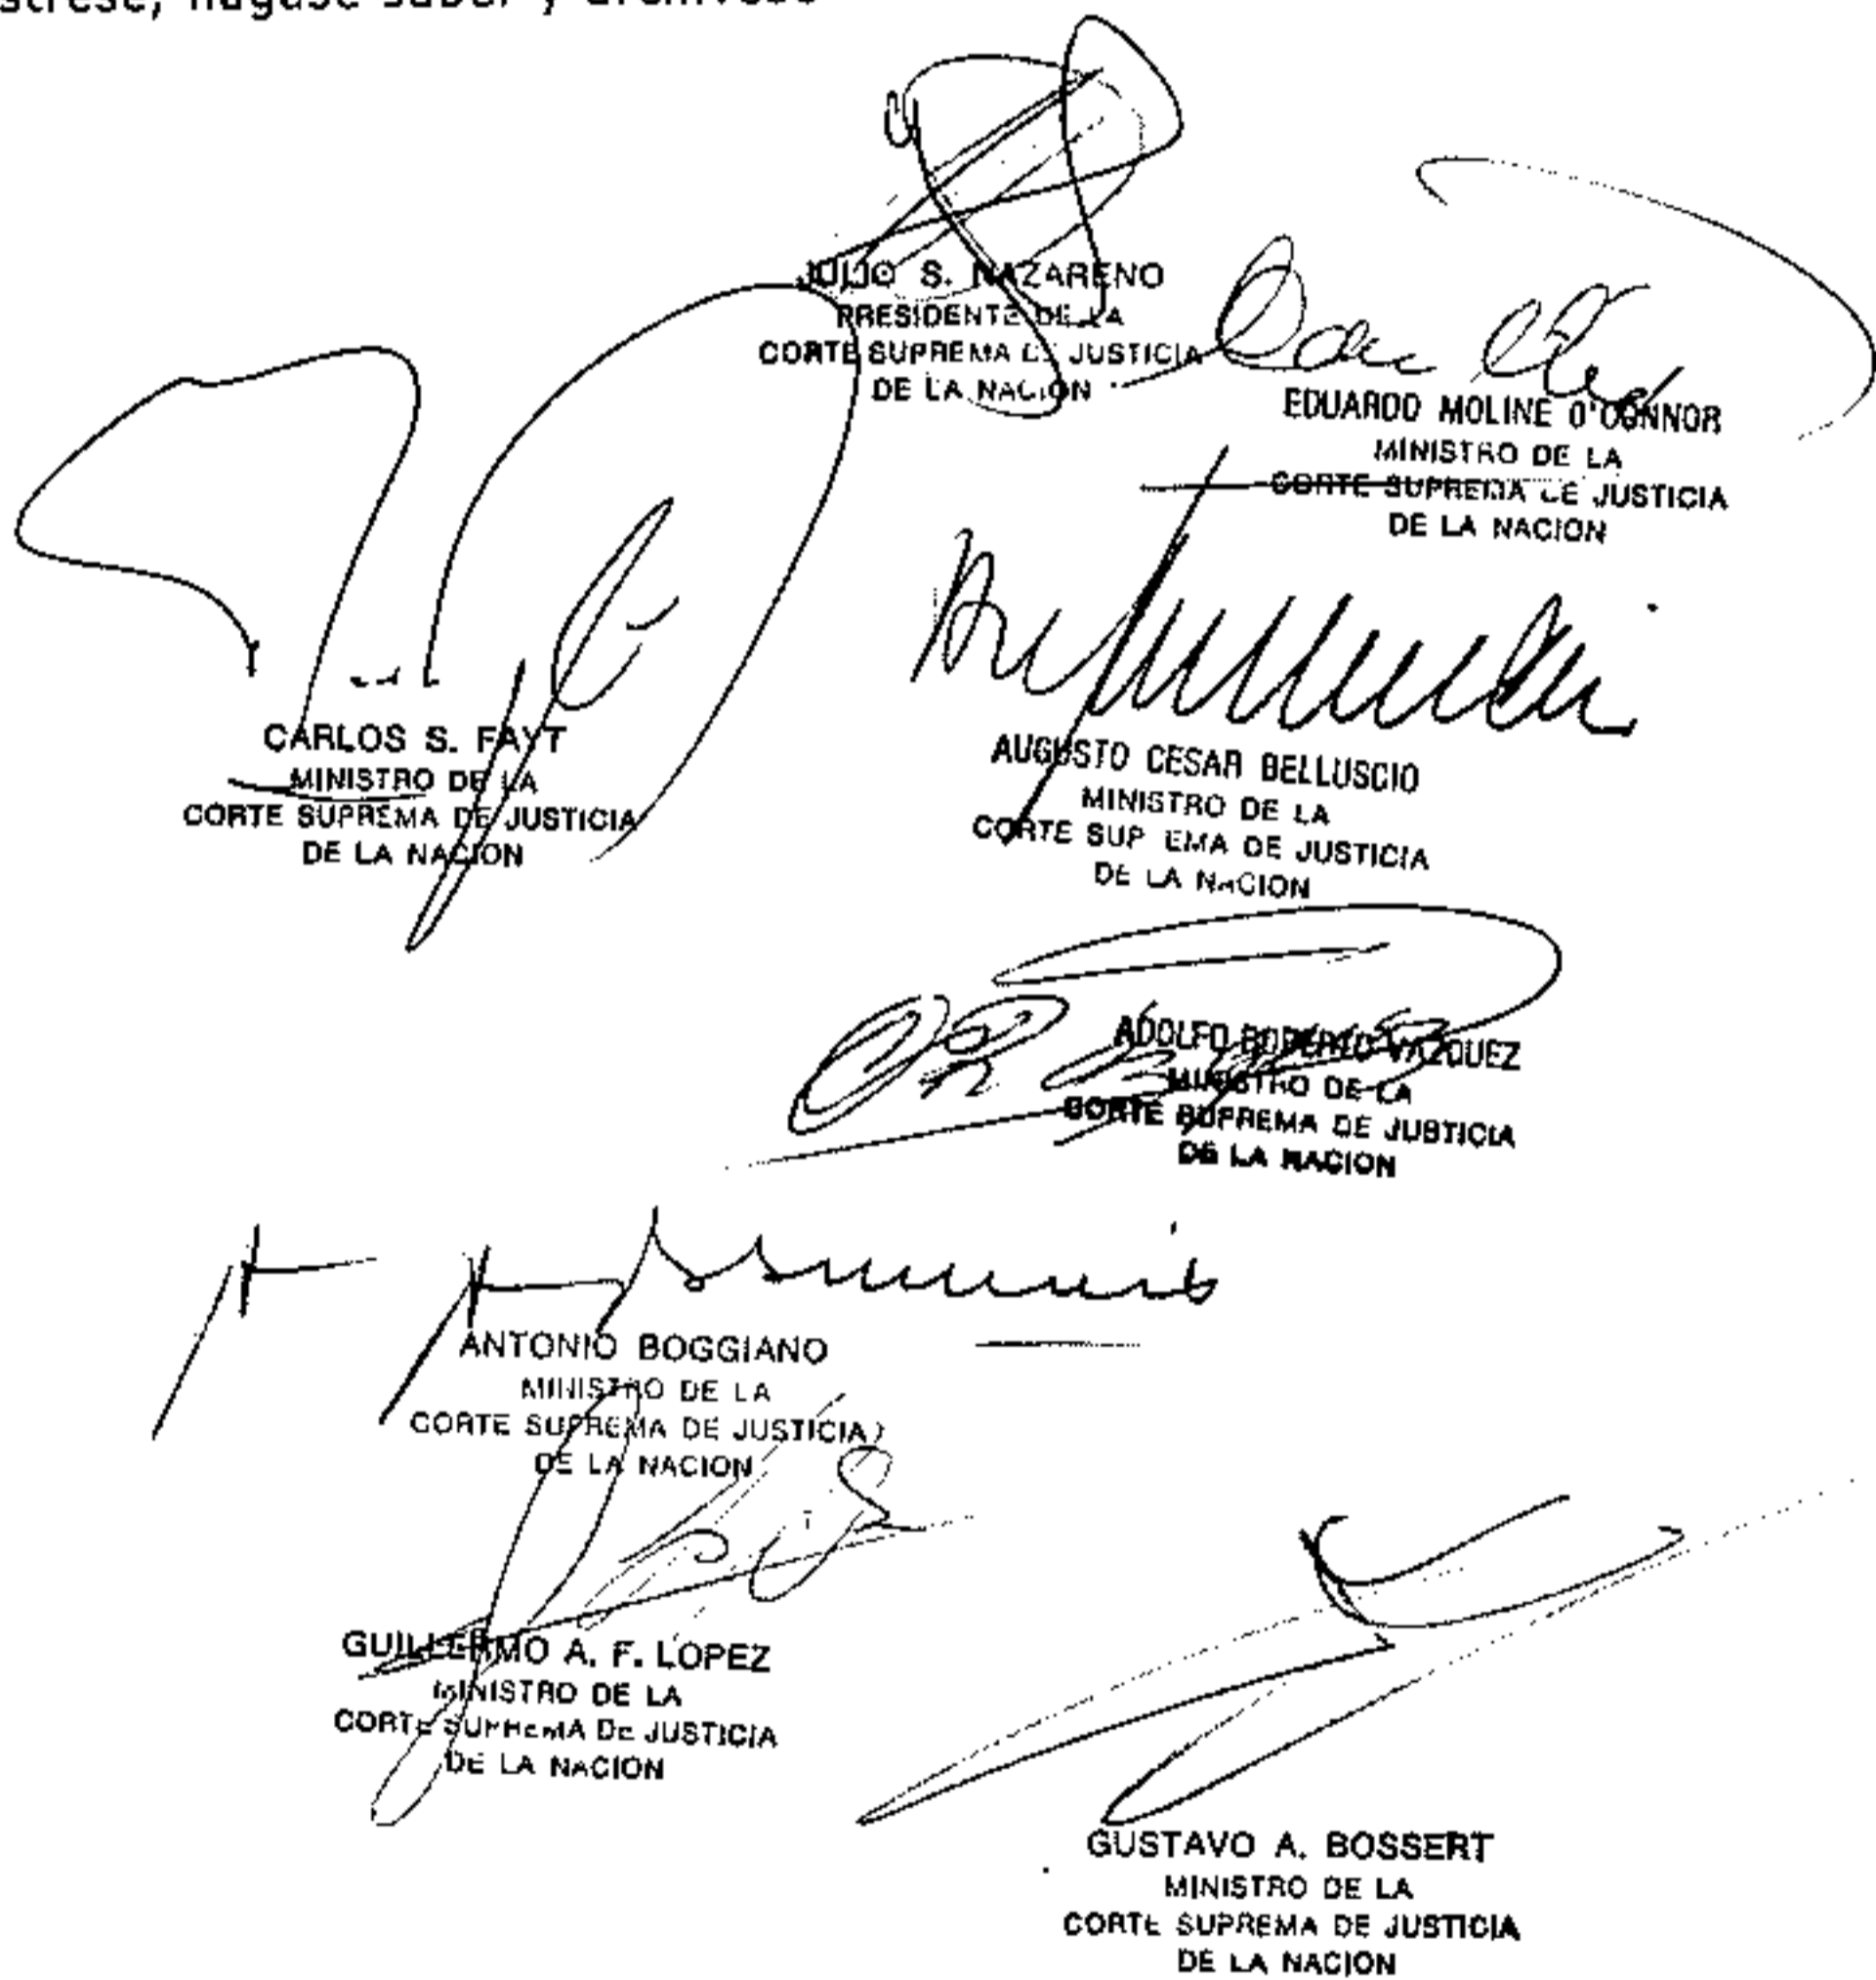 hágase saber y archívese
JULIO S. NAZARENO
PRESIDENTE DE LA
CORTE SUPREMA DE JUSTICIA
DE LA NACION
EDUARDO MOLINE O'CONNOR
MINISTRO DE LA
CORTE SUPREMA DE JUSTICIA
DE LA NACION
CARLOS S. FAYT
MINISTRO DE LA
CORTE SUPREMA DE JUSTICIA
DE LA NACION
AUGUSTO CESAR BELLUSCIO
MINISTRO DE LA
CORTE SUPREMA DE JUSTICIA
DE LA NACION
ADOLFO ROBERTO VAZQUEZ
MINISTRO DE LA
CORTE SUPREMA DE JUSTICIA
DE LA NACION
ANTONIO BOGGIANO
MINISTRO DE LA
CORTE SUPREMA DE JUSTICIA
DE LA NACION
GUILLERMO A. F. LOPEZ
MINISTRO DE LA
CORTE SUPREMA DE JUSTICIA
DE LA NACION
GUSTAVO A. BOSSERT
MINISTRO DE LA
CORTE SUPREMA DE JUSTICIA
DE LA NACION